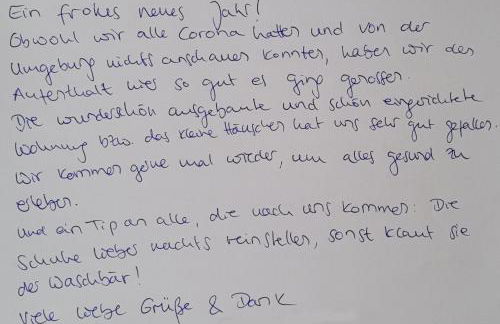 Ein frohes neues Jahr!
Obwohl wir alle Corona hatten und von der
Umgebung nichts anschauen konnten, haben wir den
Aufenthalt hier so gut es ging genossen.
Die wunderschön ausgebaute und schön eingerichtete
Wohnung bzw. das kleine Häuschen hat uns sehr gut gefallen.
Wir kommen gerne mal wieder, um alles gesund zu
erleben.
Und ein Tip an alle, die nach uns kommen: Die
Schuhe lieber nachts reinstellen, sonst klaut sie
der Waschbär!
Viele liebe Grüße & Dank